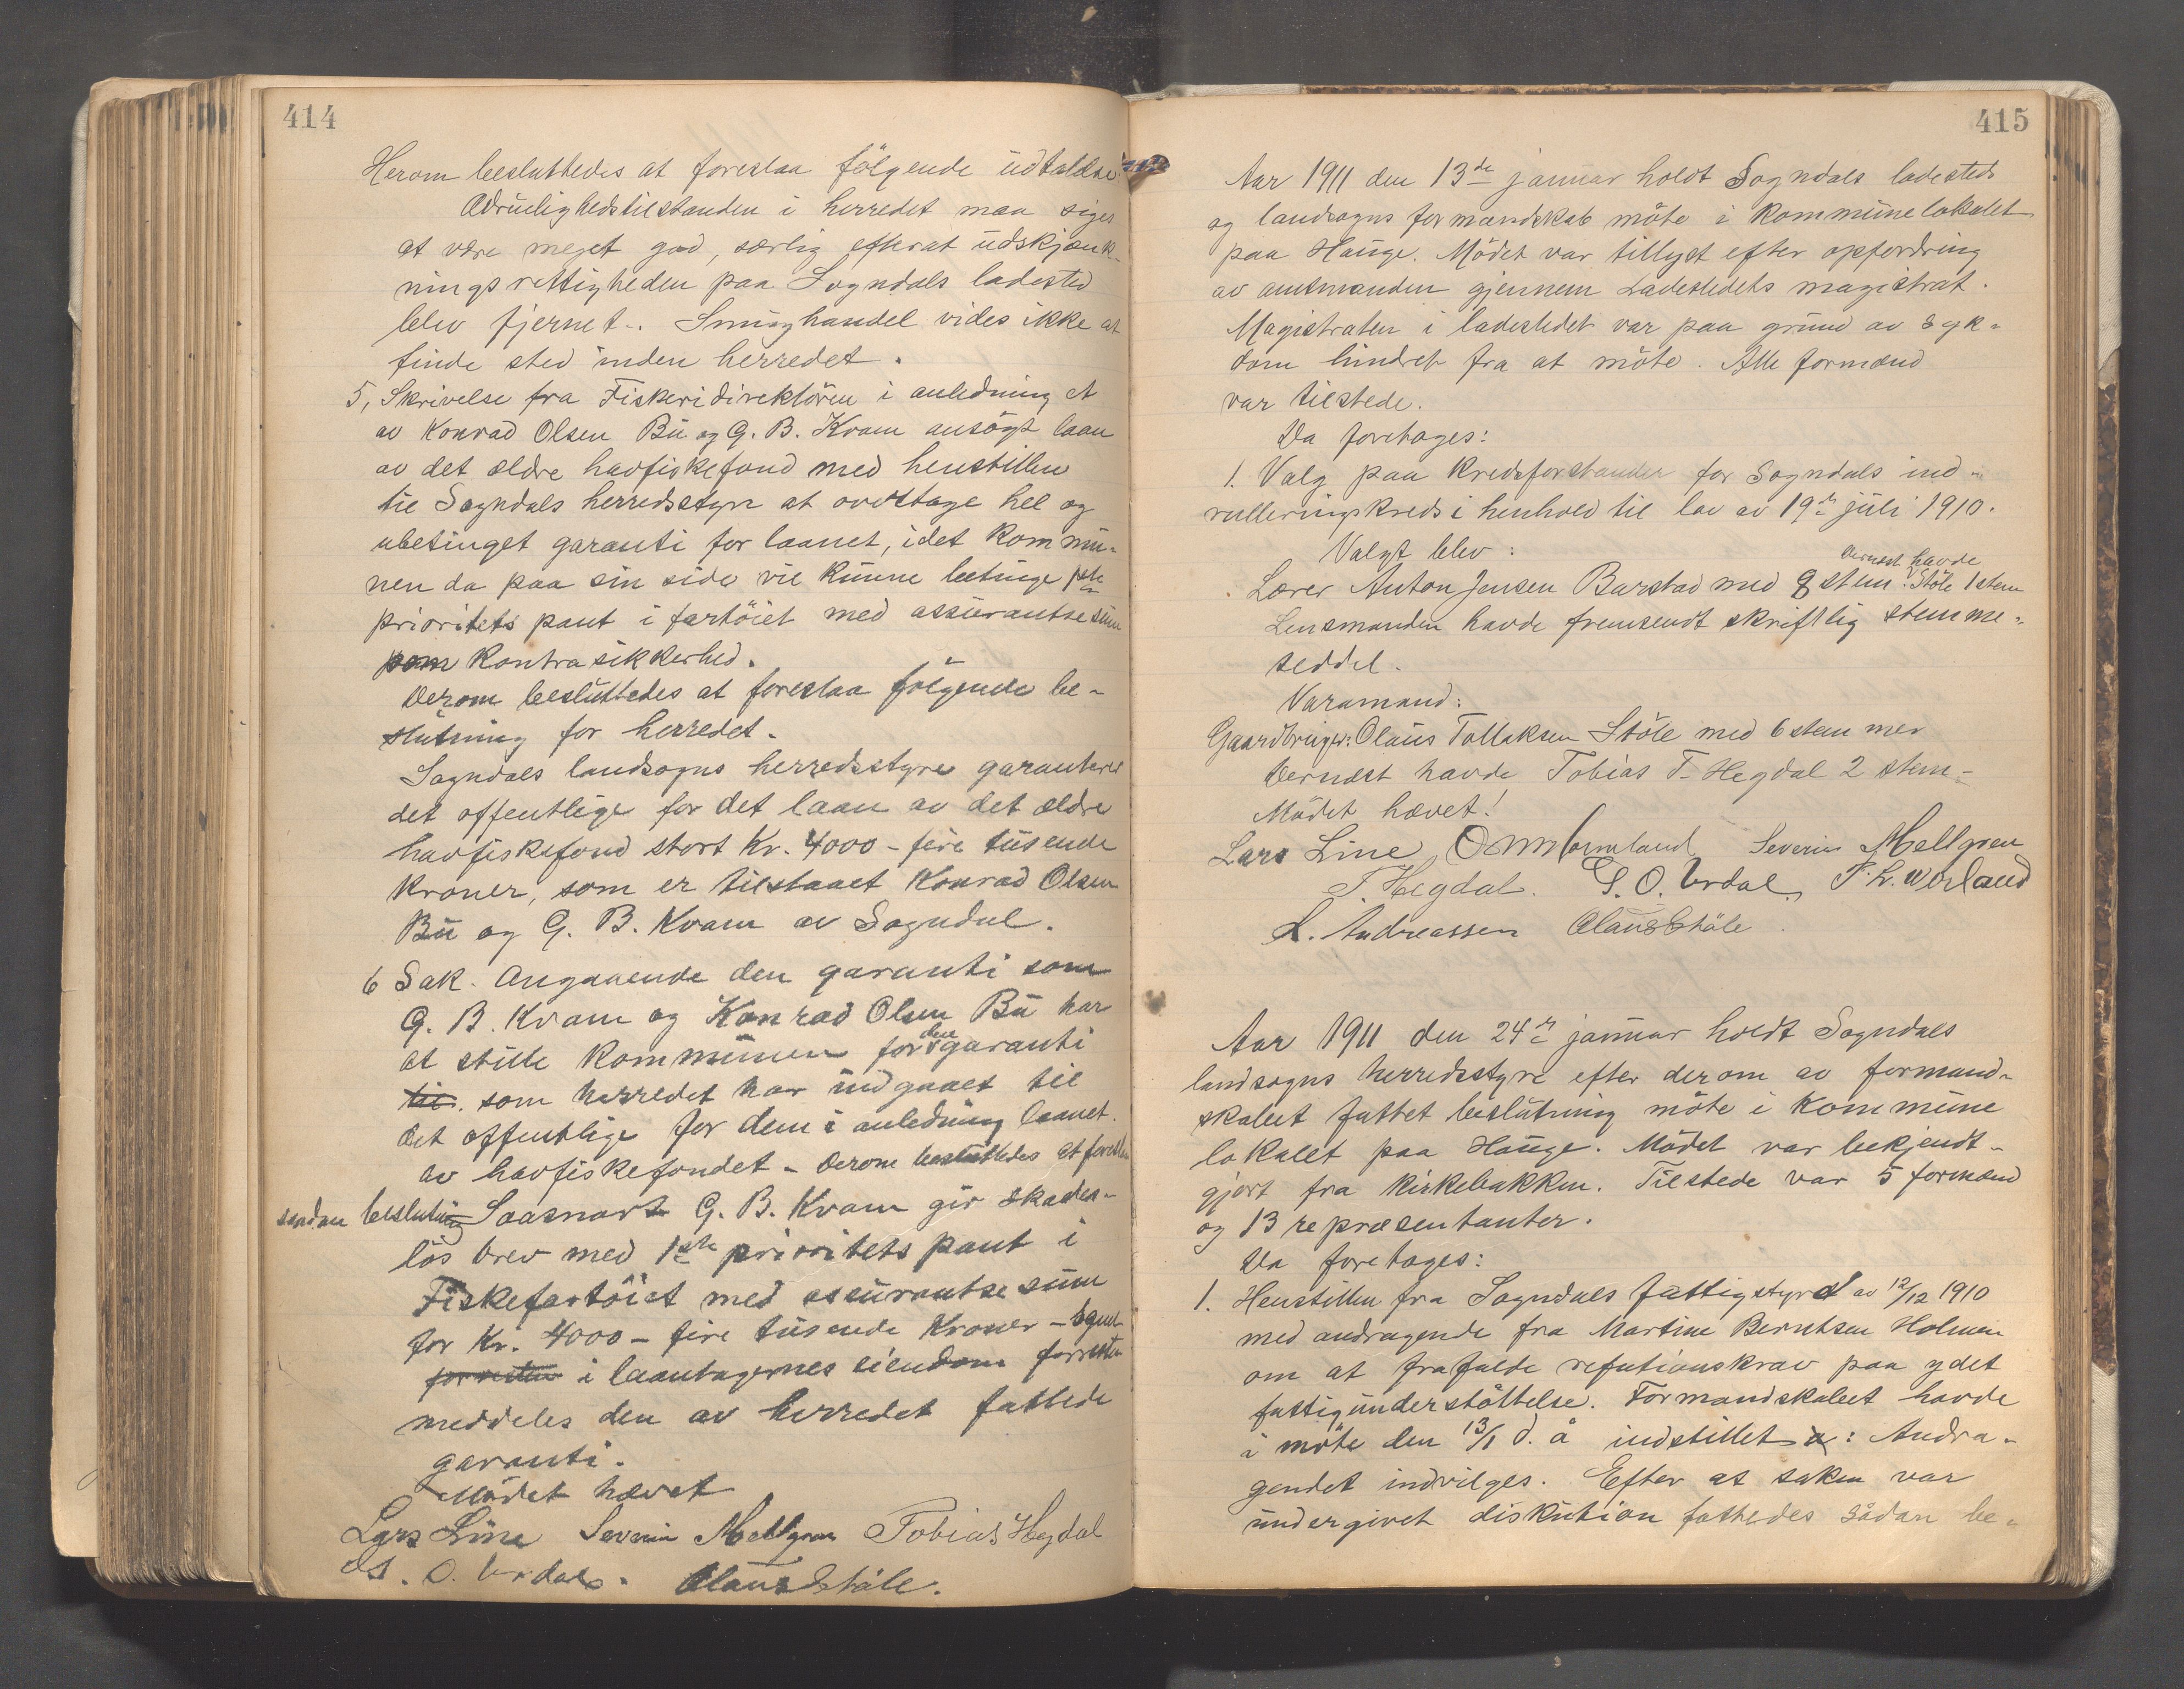 414
Herom besluttedes at foreslaa følgende udtalelse:
Ædruelighedstilstanden i herredet maa siges
at være meget god, særlig efterat udskjænk-
ningsrettigheden paa Sogndals ladested
blev fjernet. Smughandel vides ikke at
finde sted inden herredet.
5, Skrivelse fra Fiskeridirektören i anledning et
av Konrad Olsen Bü og G. B. Kvam ansögt laan
av det ældre havfiskefond med henstillen
til Sogndals herredsstyre at overtage hel og
ubetinget garanti for laanet, idet kommü-
nen da paa sin side vil künne betinge 1ste
prioritets pant i fartöiet med assürantsesüm
som kontrasikkerhed.
Derom beslüttedes at foreslaa fölgende be-
slütning for herredet.
Sogndals landsogns herredsstyre garanterer
det offentlige for det laan av det ældre
havfiskefond stort Kr. 4000 - fire tüsende
kroner, som er tilstaaet Konrad Olsen
Bü og G. B. Kvam av Sogndal.
6 Sak. Angaaende den garanti som
G. B. Kvam og Konrad Olsen Bü har
at stille kommünen for den garanti
til. som herredet har indgaaet til
det offentlige for dem i anledning laanet
av havfiskefondet - Derom beslüttedes at forestilles
saadan beslutning Saasnart G. B. Kvam gir skades-
lös brev med 1ste prioritets pant i
Fiskefartöiet med assürantse süm
for Kr. 4000 - fire tüsende Kroner -
forresten i laantagernes eiendom forresten
meddeles den av herredet fattede
garanti.
Mödet hævet
Lars Line Severin Mellgren Tobias Hegdal
S. O. Urdal. Olaus Stöle.
415
Aar 1911 den 13de janüar holdt Sogndals ladesteds
og landsogns formandskab möte i kommünelokalet
paa Haüge. Mödet var tillyst efter opfordring
av amtmanden gjennem Ladestedets magistrat.
Magistraten i ladestedet var paa gründ av syk-
dom hindret fra at möte. Alle formænd
var tilstede.
Da foretoges:
1. Valg paa Kredsforstander for Sogndals ind-
rulleringskreds i henhold til lov av 19de jüli 1910.
Valgt blev:
dernæst havde
Lærer Anton Jensen Barstad med 8 stem. Stöle 1 stem
Lensmanden havde fremsendt skriftlig stemme-
seddel.
Varamand:
Gaardbrüger: Olaüs Tollaksen Stöle med 6 stemmer
dernæst havde Tobias T. Hegdal 2 stem-
Mödet hævet!
Lars Line Severin Mellgren
T. Hegdal. S. O. Urdal. T. L. Worland
L. Andreassen Olaüs Stöle
Aar 1911 den 24de janüar holdt Sogndals
landsogns herredsstyre efter derom av formand-
skabet fattet beslütning möte i kommüne
lokalet paa Haüge. Mödet var bekjendt-
gjort fra kirkebakken. Tilstede var 5 formænd
og 13 repræsentanter.
Da foretoges:
1. Henstillen fra Sogndals fattigstyre av 12/12 1910
med andragende fra Martine Berntsen Holmen
om at frafalde refutionskrav paa ydet
fattigünderstöttelse. Formandskabet havde
i möte den 13/1 d. å indstillet: Andra-
gendet indvilges. Efter at saken var
ündergivet disküution fattedes sådan be-